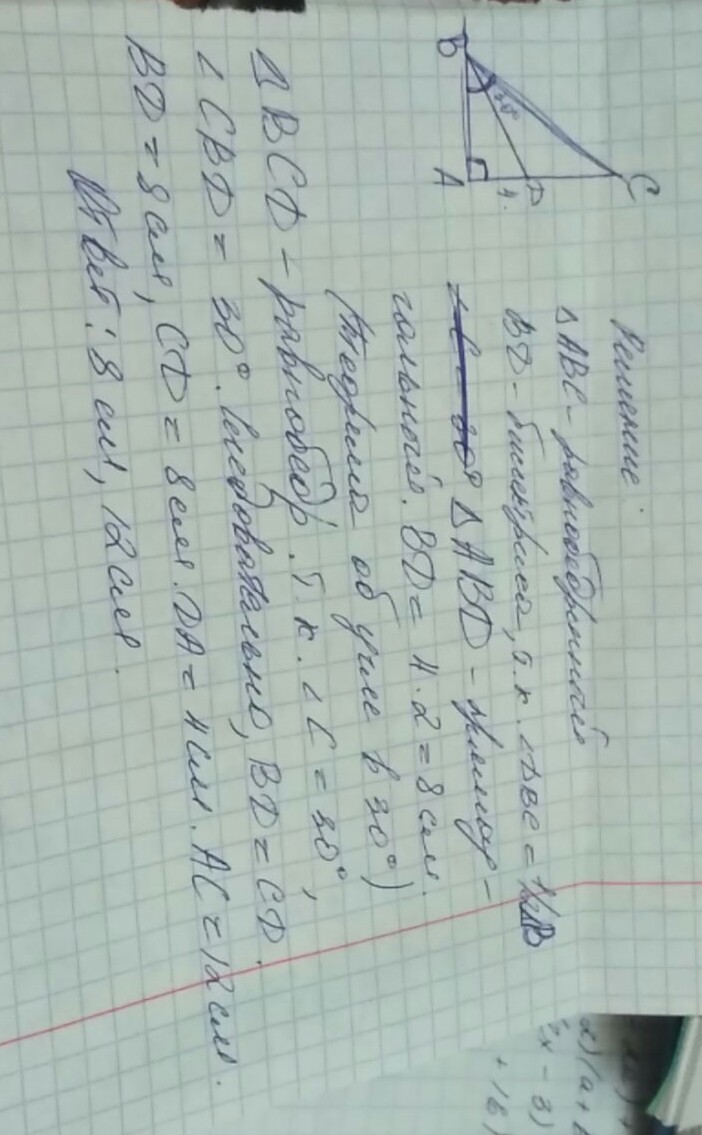 B
30°
A
4.
D
C
Решение:
Δ ABC - равнобедренный
BD - биссектриса, т.к. ∠ABC =
Δ ABD - прямоуг-
ольный. BD = 4 · 2 = 8 см.
(теорема об угле в 30°)
Δ BCD - равнобедр. т.к. ∠C = 30°,
∠CBD = 30°. Следовательно, BD = CD.
BD = 8 см, CD = 8 см. DA = 4 см. AC = 12 см.
Ответ: 8 см, 12 см.